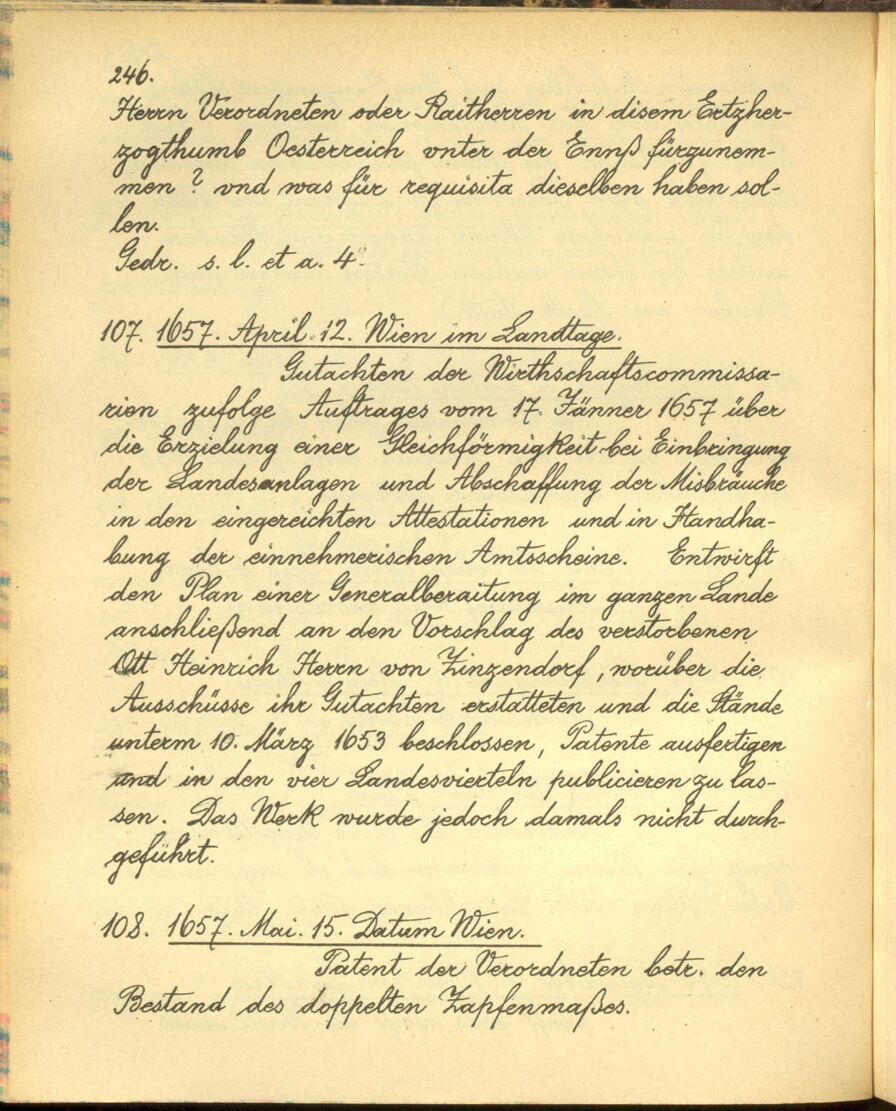 246.
Herrn Verordneten oder Raitherren in disem Ertzher-
zogthumb Oesterreich vnter der Ennß fürzunem-
men? vnd was für requisita dieselben haben sol-
len.
Gedr. s. l. et a. 4⁰
107. 1657. April. 12. Wien im Landtage.
Gutachten der Wirthschaftscommissa-
rien zufolge Auftrages vom 17. Jänner 1657 über
die Erzielung einer Gleichförmigkeit bei Einbringung
der Landesanlagen und Abschaffung der Misbräuche
in den eingereichten Attestationen und in Handha-
bung der einnehmerischen Amtsscheine. Entwirft
den Plan einer Generalberaitung im ganzen Lande
anschließend an den Vorschlag des verstorbenen
Ott Heinrich Herrn von Zinzendorf, worüber die
Ausschüsse ihr Gutachten erstatteten und die Stände
unterm 10. März 1653 beschlossen, Patente ausfertigen
und in den vier Landesvierteln publicieren zu las-
sen. Das Werk wurde jedoch damals nicht durch-
geführt.
108. 1657. Mai. 15. Datum Wien.
Patent der Verordneten betr. den
Bestand des doppelten Zapfenmaßes.